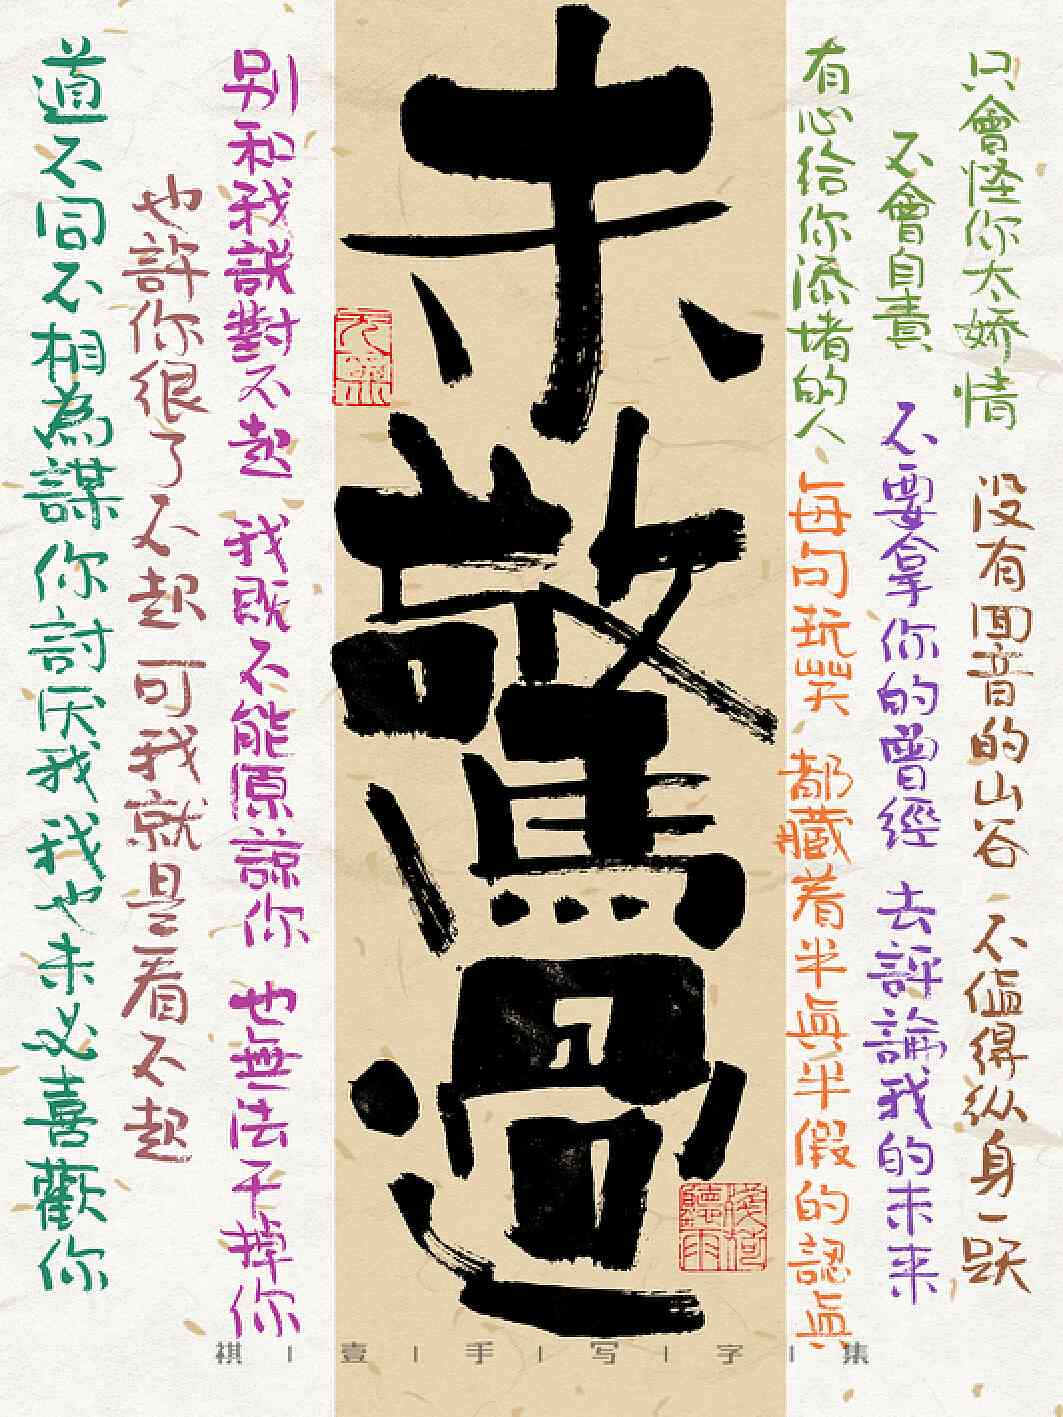 只會怪你太娇情
没有回音的山谷 不值得纵身一跃
不會自責
不要拿你的曾經 去評論我的未来
有心给你添堵的人
每句玩笑 都藏着半真半假的認真
未驚過
别和我說對不起 我既不能原諒你 也無法干掉你
也許你很了不起 可我就是看不起
道不同不相為謀 你討厌我 我也未必喜歡你
聽雨
祺|壹|手|写|字|集